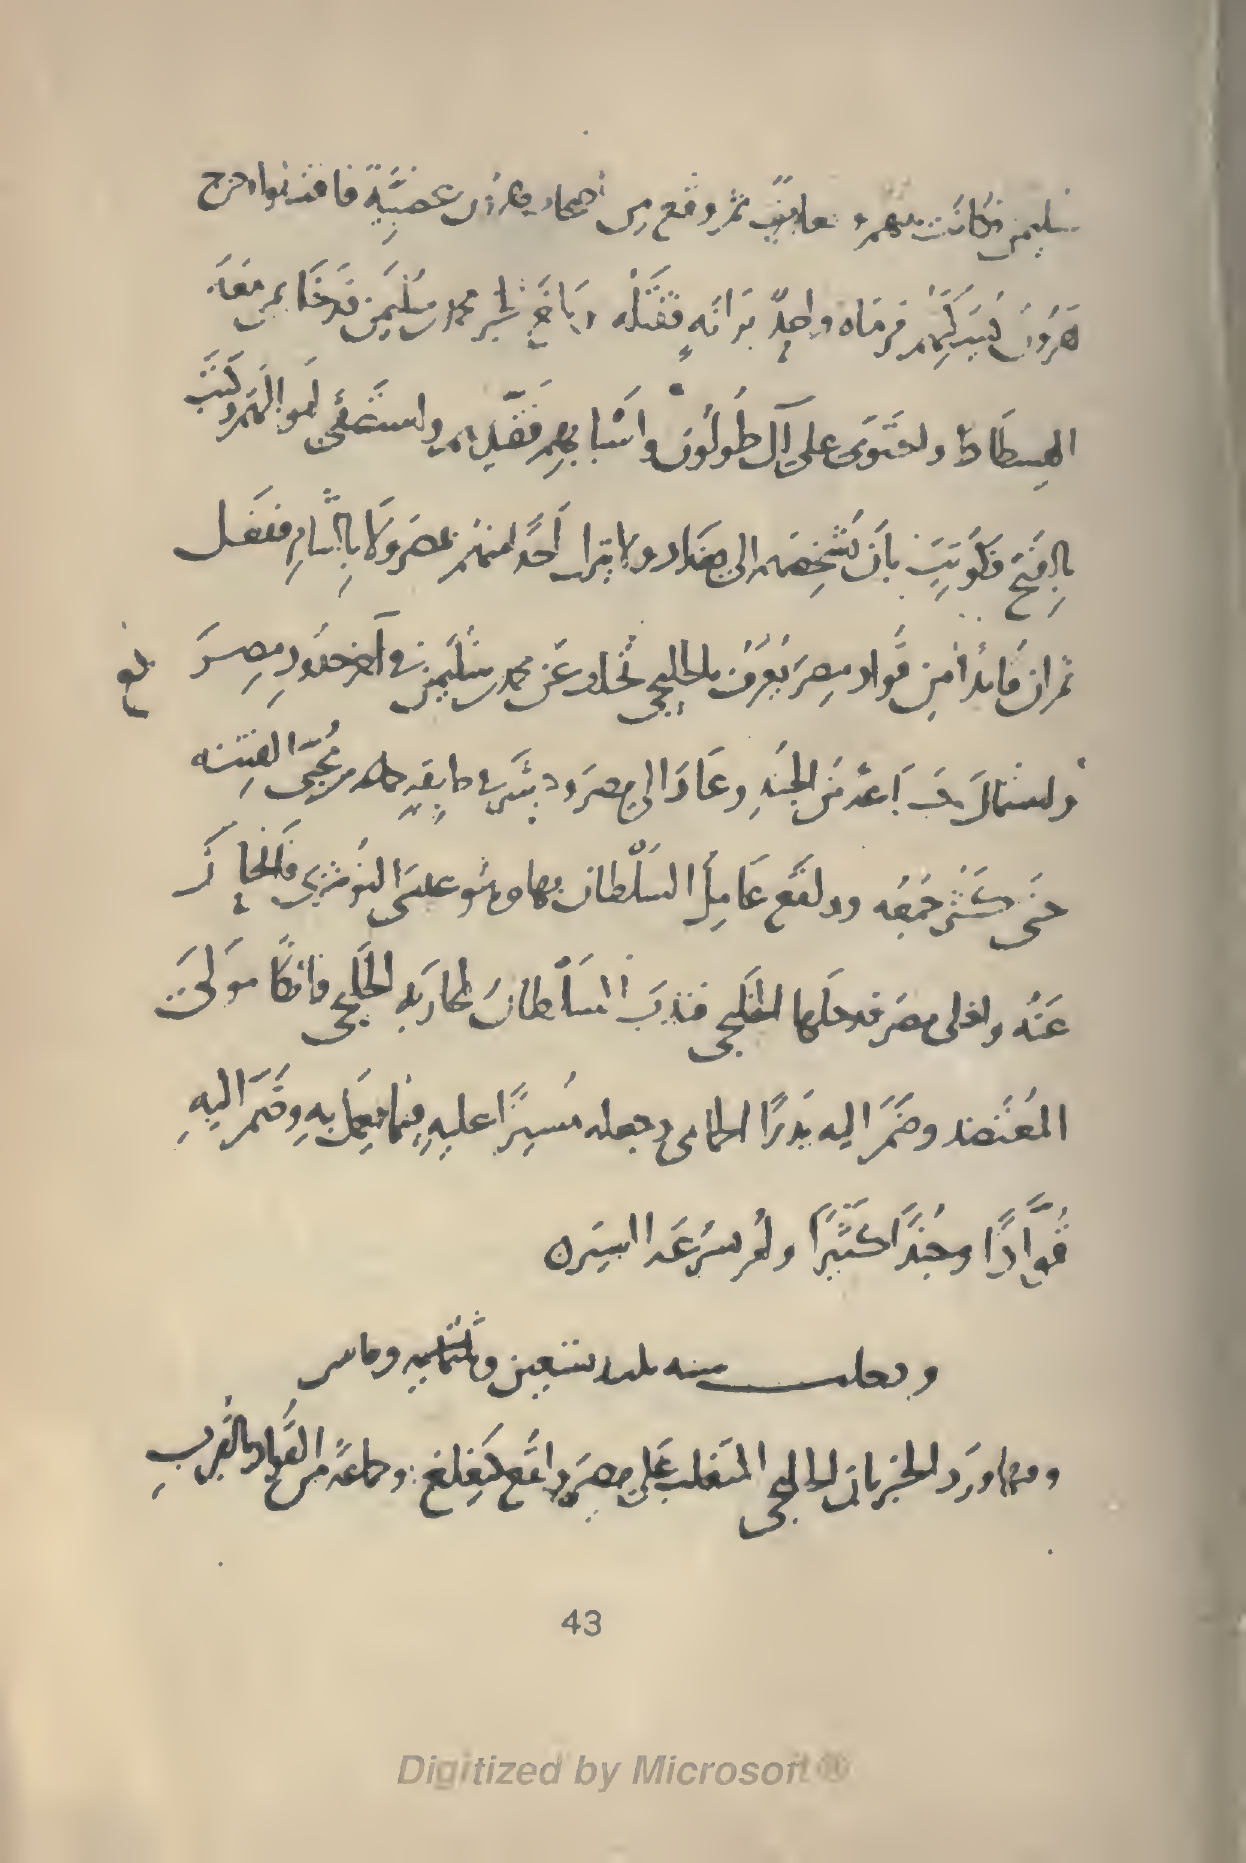 سليمن فكانت بينهم وقايع ثم وقع بين اصحاب هرون عصبية فاقتتلوا فخرج
هرون ليسكنهم فرماه واحد بزانة فقتله وبلغ الخبر محمد بن سليمن فدخل بمن معه
الفسطاط واحتوى على آل طولون واسبابهم فقيدهم واستصفى اموالهم وكتب
بالفتح فكوتب بأن يشخصهم الى بغداد ولا يترك أحدا منهم بمصر ولا بالشام ففعل
ثم ان قائدا من قواد مصر يعرف بالخليجي تخلف عن محمد بن سليمن في آخر حدود مصر
بلغ
واستمال جماعة من الجند وعاد الى مصر وفي طايفه من محبى الفتنه
حتى كثر جمعه ودافع عامل السلطان بها وهو عيسى النوشرى فانحاز
عنه واخلى مصر فدخلها الخليجي فندب السلطان لمحاربة الخليجي فاتكا مولى
المعتضد وضم اليه بدرا الحمامى وجعله مشيرا عليه فيما يعمل به وضم اليه
قوادا وجندا كثيرا وامر بسرعة المسيره
ودخلت سنه ثلث وتسعين ومايتين
وفيها ورد الخبر بان الخليجي المتغلب على مصر واقع كيغلغ وجماعة من القواد بالقرب
43
Digitized by Microsoft®